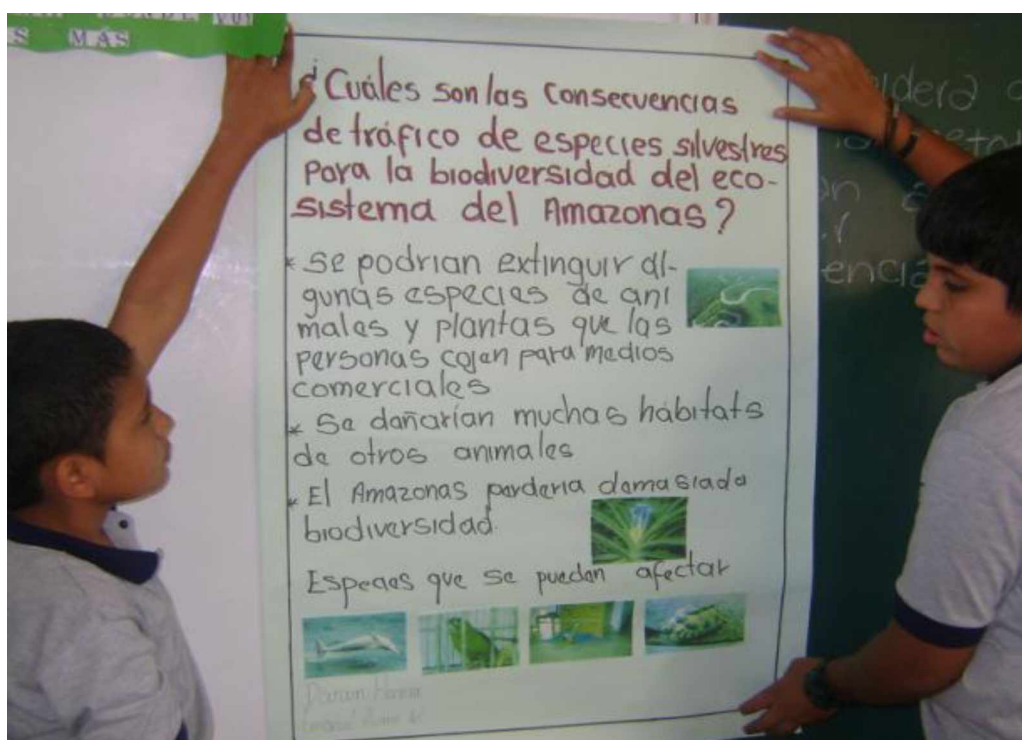 S MÁS
¿Cuáles son las Consecuencias
de tráfico de especies silvestres
Para la biodiversidad del eco-
sistema del Amazonas?
* Se podrian extinguir al-
gunas especies de ani
males y plantas que las
personas cojan para medios
comerciales
* Se dañarían muchas hábitats
de otros animales
* El Amazonas perderia demasiada
biodiversidad.
Especies que se pueden afectar